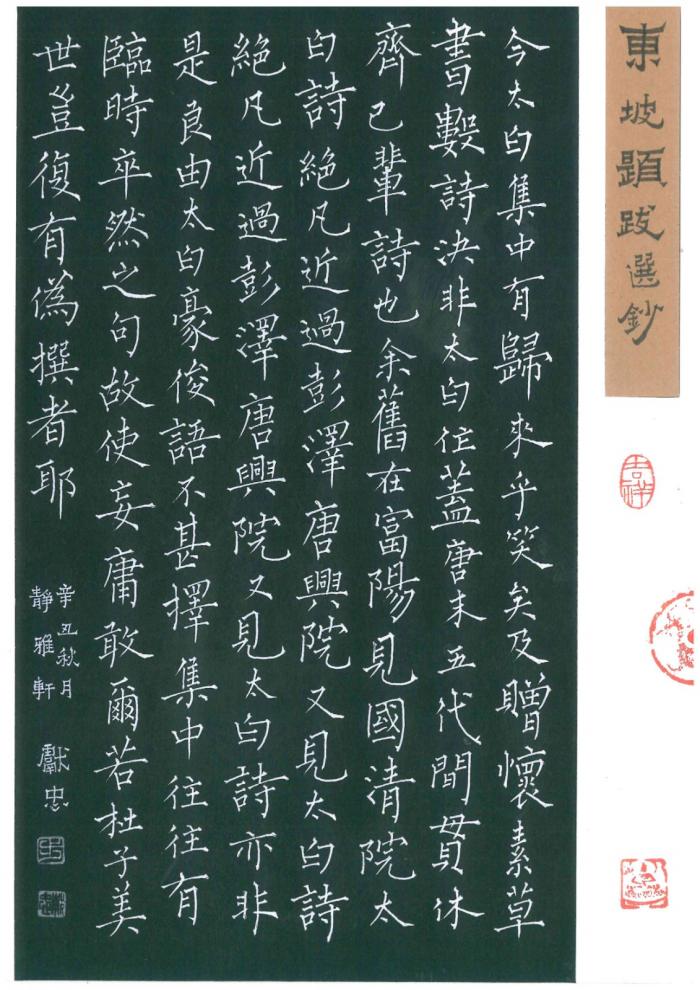 東坡題跋選鈔
吉祥
今太白集中有歸來乎笑矣及贈懷素草
書數詩決非太白作蓋唐末五代間貫休
齊己輩詩也余舊在富陽見國清院太
白詩絕凡近過彭澤唐興院又見太白詩
絕凡近過彭澤唐興院又見太白詩亦非
是良由太白豪俊語不甚擇集中往往有
臨時卒然之句故使妄庸敢爾若杜子美
世豈復有僞撰者耶
辛丑秋月
靜雅軒
獻忠